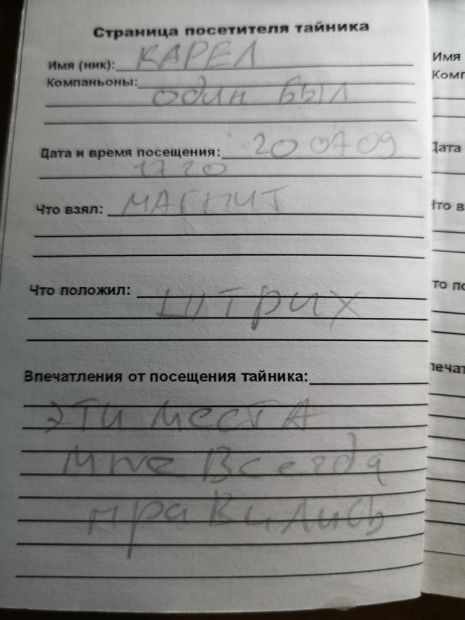 Страница посетителя тайника
Имя (ник): КАРЕЛ
Компаньоны:
один был
Дата и время посещения: 20 07 09
17 20
Что взял: МАГНИТ
Что положил:
штрих
Впечатления от посещения тайника:
эти места
мне всегда
нравились
Имя
Комп
Дата
Что в
то по
печат